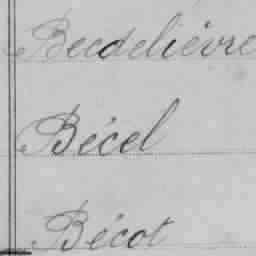 Becdelièvre
Bécel
Bécot